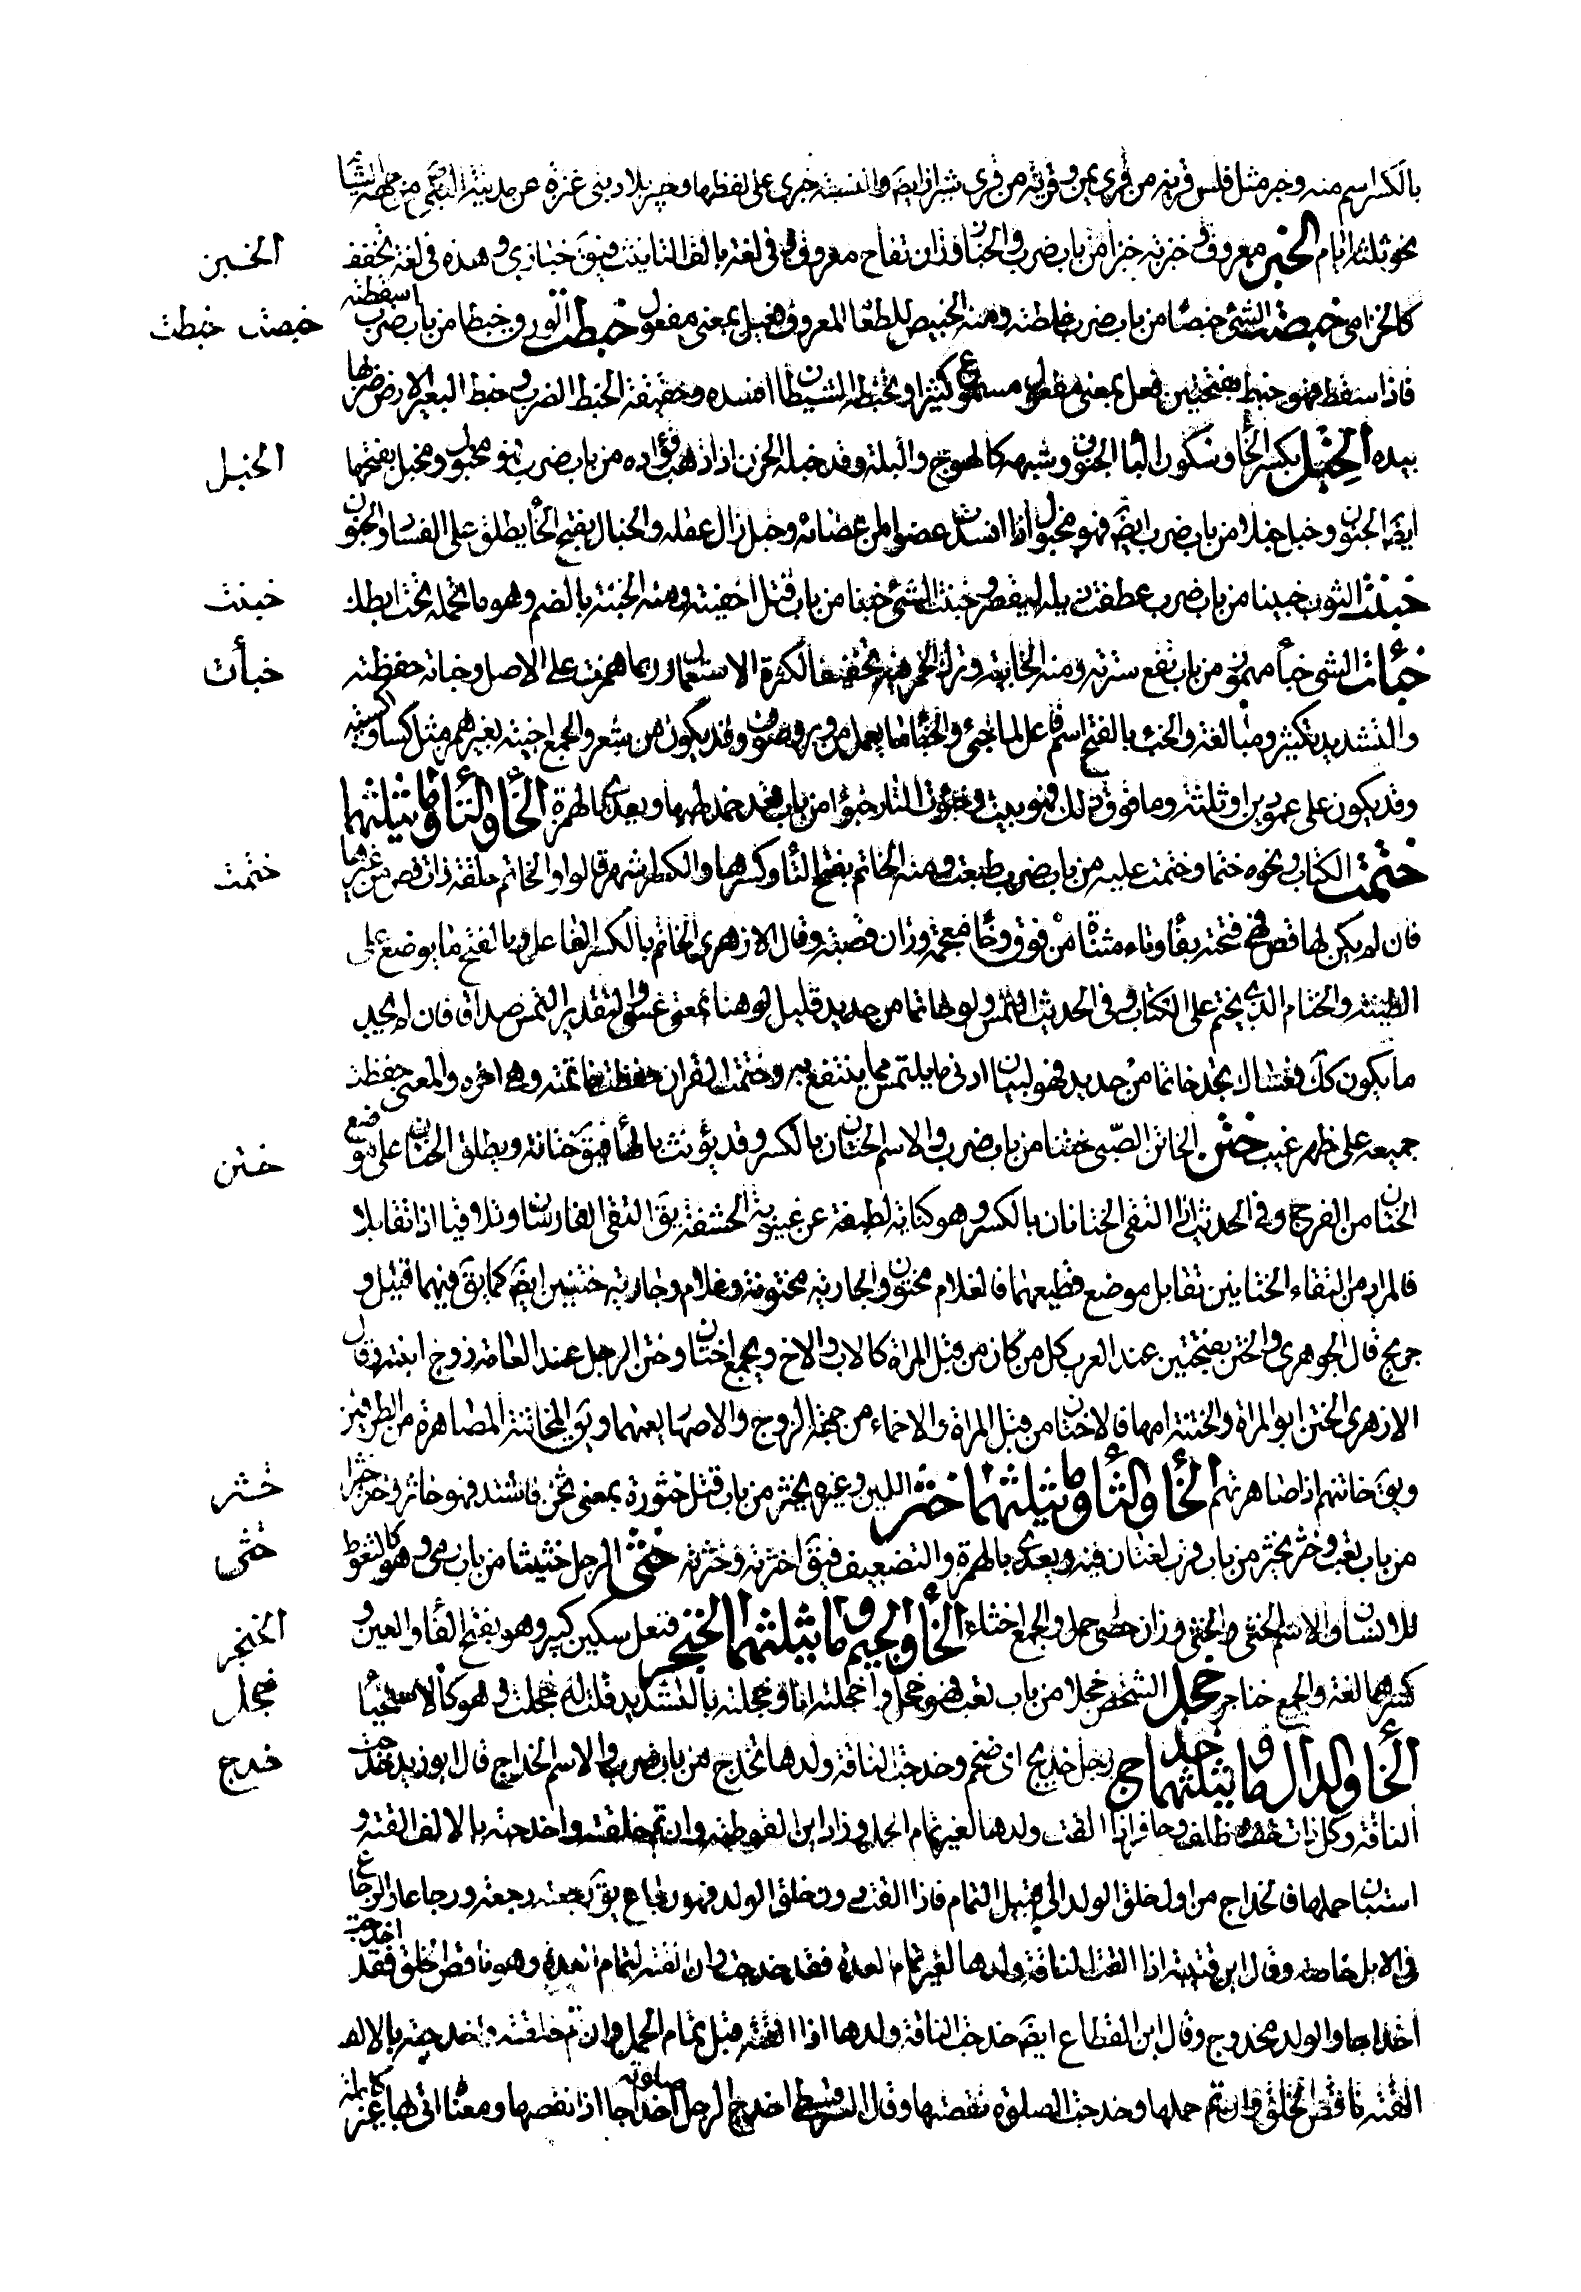 بالكسر اسم منه وخبر مثل فلس قرية من قرى يمن وقرية من قرى شيراز ايضَ والنسبة خبرى على لفظها وخيبر بلاد بنى عنزة عن مدينة النبى ص من جهة الشأ
نحو ثلثة ايام الخبز معروف وخبزته خبزا من باب ضرب والخباز وزان تفاح معروف وفى لغة بالف التانيث فيقَ خبازى وهذه فى لغة تخفف
الخبز
كالخزامى خبصت الشئ خبصا من باب ضرب خلطته ومنه الخبيص للطعا المعروف فعيل بمعنى مفعول خبطت الورق خبطا من باب ضرب اسقطته
خبصت خبطت
فاذا سقط فهو خبط بفتحتين فعل بمعنى مفعول مسموع كثيرا وتخبطه الشيطان افسده وحقيقة الخبط الضرب وخبط البعير الارض ضربها
بيده الخبل بكسر الخأ وسكون البأ الجنون وشبهه كالهوج والبله وقد خبله الحزن اذا ذهب فؤاده من باب ضرب فهو مخبول ومخبل بفتحها
الخبل
ايضَ الجنون وخبل خبلا من باب ضرب ايضَ فهو مخبول اذا افسدت عضوا من اعضائه وخبل زال عقله والخبال بفتح الخأ يطلق على الفساد والجنون
خبنت الثوب خبنا من باب ضرب عطفت ذيله ليقصر وخبنت الشئ خبنا من باب قتل اخفيته ومنه الخبنة بالضم وهو ما تحمله تحت ابطك
خبنت
خبأت الشى خبأ مهموز من باب نفع سترته ومنه الخابية وترك الهمزة تخفيفا لكثرة الاستعمال وربما همزت على الاصل وخبأته حفظته
خبأت
والتشديد تكثير ومبالغة والخبء بالفتح اسم فاعل لما خبئ والخبأ ما يعمل من وبر وصوف وقد يكون من شعر والجمع اخبية بغير همز مثل كسا واكسية
وقد يكون على عمودين او ثلثة وما فوق ذلك فهو بيت وخبت النار خبوا من باب قعد خمد لهبها ويعدى بالهمزة الخأ والتأ وما يثلثهما
ختمت الكتاب ونحوه ختما وختمت عليه من باب ضرب طبعت ومنه الخاتم بفتح التأ وكسرها والكسر اشهر قالوا والخاتم حلقة ذات فص من غيرها
ختمت
فان لم يكن لها فص فهى فتخة بفأ وتاء مثناة من فوق وخأ معجمة وزان قصبة وقال الازهرى الخاتم بالكسر الفاعل وبالفتح ما يوضع على
الطينة والختام الذى يختم على الكتاب وفى الحديث التمس ولو خاتما من حديد قيل لو هنا بمعنى عسى والتقدير التمس صداقا فان لم تجد
ما يكون كذَ فعساك تجد خاتما من حديد فهو لبيان ادنى ما يلتمس مما ينتفع به وختمت القران حفظت خاتمته وهى اخره والمعنى حفظت
جميعه على ظهر غيب ختن الخاتن الصبى ختنا من باب ضرب والاسم الختان بالكسر وقد يؤنث بالهأ فيقَ ختانة ويطلق الختان على موضع
ختن
الختان من الفرج وفى الحديث اذا التقى الختانان بالكسر وهو كناية لطيفة عن غيبوبة الحشفة يقَ التقى الفارسان وتلاقيا اذا تقابلا
فالمراد من التقاء الختانين تقابل موضع قطعهما فالغلام مختون والجارية مختونة وغلام وجارية ختين ايضَ كما يقَ فيهما قتيل و
جريح قال الجوهرى والختن بفتحتين عند العرب كل من كان من قبل المراة كالاب والاخ ويجمع اختان وختن الرجل عند العامة زوج ابنته وقال
الازهرى الختن ابو المراة والختنة امها فالاختان من قبل المراة والاحماء من جهة الزوج والاصهار يعمهما ويقَ المخاتنة المصاهرة من الطرفين
ويقَ خاتنهم اذا صاهرتهم الخأ والثأ وما يثلثهما خثر اللبن وغيره يخثر من باب قتل خثورة بمعنى ثخن فاشتد فهو خاثر وخثر خثرا
خثر
من باب تعب وخثر يخثر من باب قرب لغتان فيه ويعدى بالهمزة والتضعيف فيقَ اخثرته وخثرته خثى الرجل خثيا من باب رمى وهو كالتغوط
خثى
للانسان والاسم الخثى والخثى وزان حصى وحمل والجمع اخثاء الخأ والجيم وما يثلثهما الخنجر فنعل سكين كبير وهو بفتح الفأ والعين و
الخنجر
كسرهما لغة والجمع خناجر خجل الشخص خجلا من باب تعب فهو خجل واخجلته انا وخجلته بالتشديد قلت له خجلت وهو كالاستحيأ
خجل
الخأ والدال وما يثلثهما خدج رجل خديج اى ضخم وخدجت الناقة ولدها تخدج من باب ضرب والاسم الخداج قال ابو زيد خدجت
خدج
الناقة وكل ذات خف وظلف وحافر اذا القت ولدها لغير تمام الحمل وزاد ابن القوطية وان تم خلقه واخدجته بالالف القته و
استبان حملها فالخداج من اول خلق الولد الى قبيل التمام فاذا القت دون خلق الولد فهو رجاع يقَ رجعته رجعه ورجاعا والرجاع
فى الابل خاصة وقال ابن قتيبة اذا القت الناقة ولدها لغير تمام العدة فقد خدجت وان القته لتمام العدة وهو ناقص الخلق فقد اخدجت
اخداجا والولد مخدوج وقال ابن القطاع ايضَ خدجت الناقة ولدها اذا القته قبل تمام الحمل وان تم خلقته واخدجته بالالف
القته ناقص الخلق وان تم حملها وخدجت الصلوة نقصتها وقال السرقسطى اخدج الرجل صلوته اخداجا اذا نقصها ومعناه اتى بها غير كاملة